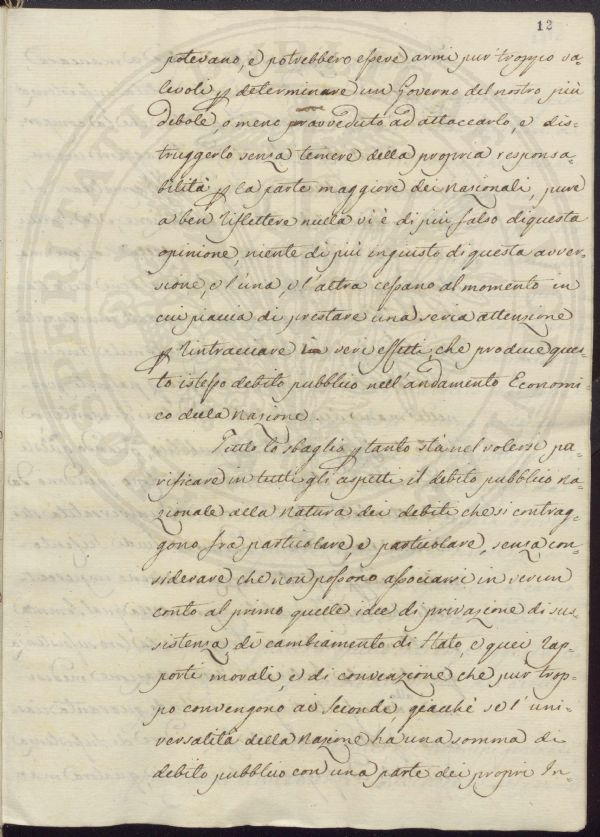 12
potevano, e potrebbero essere armi pur troppo va=
levoli p determinare un Governo del nostro più
debole, o meno provveduto ad attaccarlo, e dis=
truggerlo senza temere della propria responsa=
bilità p la parte maggiore dei Nasionali, pure
a ben riflettere nulla vi è di più falso di questa
opinione, niente di più ingiusto di questa avver=
sione, e l'una, e l'altra cessano al momento in
cui piaccia di prestare una seria attenzione
p rintracciare i veri effetti, che produce ques=
to istesso debito pubblico nell'andamento Economi=
co della Nazione.
Tutto lo sbaglio p tanto stà nel volersi pa=
rificare in tutti gli aspetti il debito pubblico na=
zionale alla natura dei debiti che si contrag=
gono fra particolare, e particolare, senza con=
siderare che non possono associarsi in verun
conto al primo quelle idee di privazione di sus=
sistenza, di cambiamento di Stato, e quei rap=
porti morali, e di convenzione che pur trop=
po convengono ai secondi giacchè se l'uni=
versalità della Nazione ha una somma di
debito pubblico con una parte dei proprj In=